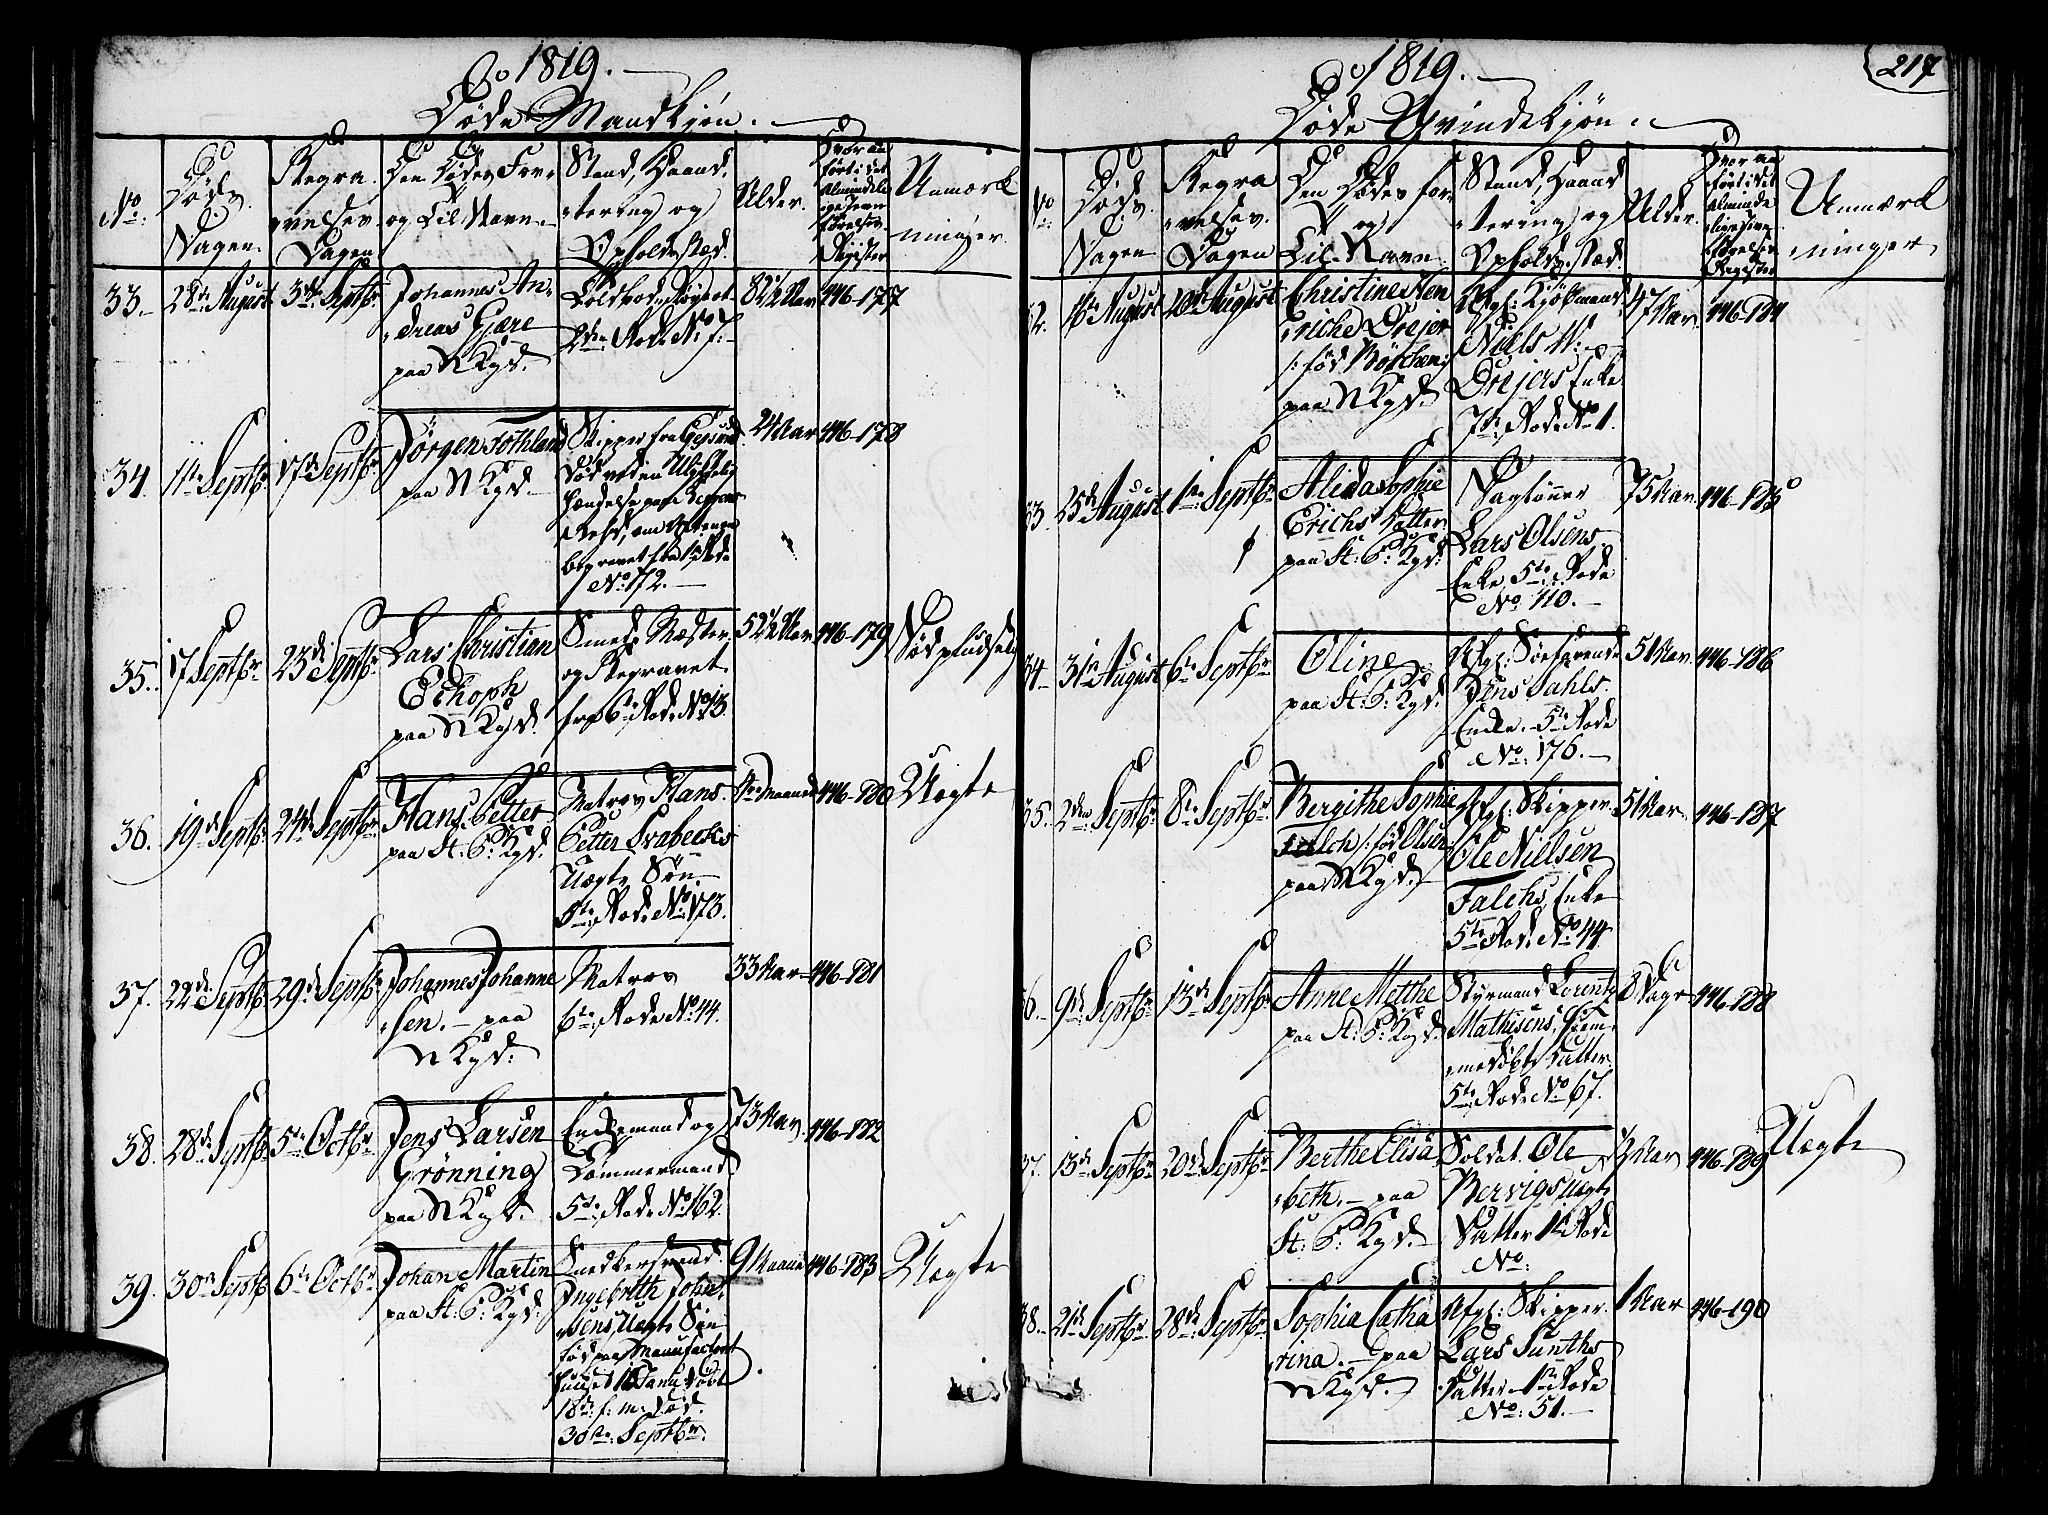 Ao 1819.
Døde Mandkjøn.
No:
Døds Dagen.
Begravelses Dagen
Den Dødes For- og Til Navn
Stand, Haandtering og Opholds Stæd.
Alder.
Hvor anført i det Almindelige Jevnførelses Register
Anmærkninger.
33.
28de August
3die Septbr:
Johannes An-
dreas Gjære
paa N Kgd.
2den Rode No 7.
82½ Aar
446-177
34.
11te Septbr
17de Septbr
Jörgen
paa N Kgd.
Skipper fra
død ved en Ulykkelig
Hændelse paa
begravet fra 1ste Rode
No 172.
24 Aar
446-178
35.
17 Septbr
23de Septbr
Lars Christian
Echoph
paa N Kgd.
Smede Mæster
og Begravet
fra 6te Rode No 13.
52½ Aar
446-179
Død pludselig
36.
19de Septbr
24de Septbr
Hans Petter
paa St: P: Kgd.
Matros Hans
Petter Svabecks
Uægte Søn
5te Rode No 173.
Maaned
446-180
Uægte
37.
22de Septbr
29de Septbr
Johannes Johanne
sen. paa
N Kgd:
Matros
6te Rode No 44.
33 Aar
446-181
38.
28de Septbr
5te Octbr
Jens Larsen
Grönning
paa N Kgd.
Enkemand og
Tømmermand
5te Rode No 162.
73 Aar
446-182
39.
30te Septbr
6te Octbr
Johan Martin
paa St: P: Kgd.
Snedkersvend
Ingebrecth Johan-
sens, Uægte Søn
fød paa Manufactur
huuset 10 Janu døbt
18de s: m: død
30te Septbr.
9 Maaned
446-183
Uægte
Ao 1819.
217
Døde Qvindekjøn.
No
Døds Dagen
Begravelses Dagen
Den Dødes for- og Til Navn
Stand, Haandtering og Opholds stæd.
Alder.
Hvor anført i det Almindelige Jevnførelses Register
Anmærkninger
32.
16de August
20de August
Christine Hen
riche Drejer
/: fød Böschen
paa N Kgd.
Afg: Kjøbmand
Niels W:
Drejers Enke
7de Rode No 1.
47 Aar
446-184
33.
25de August
1ste Septbr
Alida Sophie
Erichs Datter
paa St: P: Kgd:
Dagløner
Lars Olsens
Enke 5te Rode
No 110.
75 Aar
446-185
34.
31te August
6te Septbr
Oline
paa St: P: Kgd.
Afg: Søefarende
Jens Dahls
Enke. 5te Rode
No: 176.
51 Aar
446-186
35.
2den Septbr
8de Septbr
Bergithe Sophie
Falch /: fød Olsen
paa N Kgd.
Afg: Skipper
Ole Nielsen
Falchs Enke
5te Rode No 44
51 Aar
446-187
36.
9de Septbr
13de Septbr
Anne Metthe
paa St: P: Kgd.
Styrmand Lorentz
Mathisens, Hjem-
medøbte Datter
5te Rode No 67.
8 Dage
446-188
37.
13de Septbr
20de Septbr
Berthe Elisa
beth. paa
St: P: Kgd.
Soldat Ole
Bervigs Uægte
Datter 1ste Rode
No:
½ Aar
446-189
Uægte
38.
21de Septbr
28de Septbr
Sophia Catha
rina. paa
N Kgd.
Afg: Skipper
Lars Sunths
Datter 1ste Rode
No: 51.
1 Aar
446-190